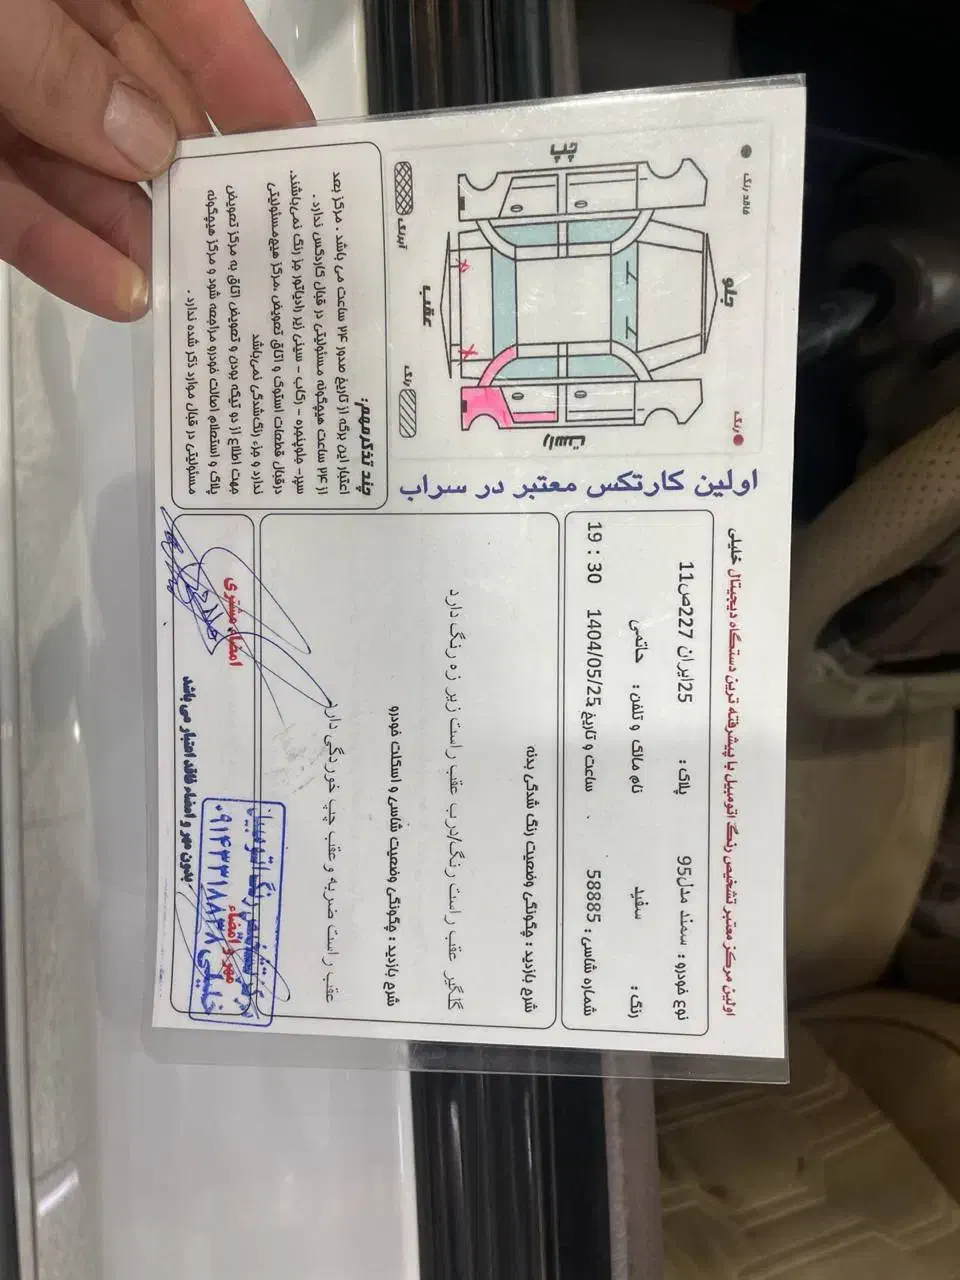 اولین مرکز معتبر تشخیص رنگ اتومبیل با پیشرفته ترین دستگاه دیجیتال خلیلی
نوع خودرو : سمند مدل95 پلاک : 25ایران 227ص11
رنگ : سفید نام مالک و تلفن : حاتمی
شماره شاسی : 58885 ساعت و تاریخ 1404/05/25 19 : 30
شرح بازدید : چگونگی وضعیت رنگ شدگی بدنه
گلگیر عقب راست رنگ/درب عقب راست زیر زه رنگ دارد
شرح بازدید : چگونگی وضعیت شاسی و اسکلت خودرو
عقب راست ضربه و عقب چپ خوردگی دارد
امضاء مشتری
مهر و امضاء
تشخیص رنگ اتومبیل
۰۹۱۴۳۳۱۸۸۳۸
خلیلی
بدون مهر و امضاء فاقد اعتبار می باشد
رنگ
فاقد رنگ
جلو
راست
چپ
عقب
رنگ
آبرنگ
اولین کارتکس معتبر در سراب
چند تذکر مهم:
اعتبار این برگه از تاریخ صدور ۲۴ ساعت می باشد . مرکز بعد
از ۲۴ ساعت هیچگونه مسئولیتی در قبال کاردکس ندارد .
سپر- جلوپنجره - رکاب - سینی زیر رادیاتور جز رنگ نمی‌باشد.
درقبال قطعات استوک و اتاق تعویض ,مرکز هیچ‌مسئولیتی
ندارد و جزء رنگ‌شدگی نمی‌باشد
جهت اطلاع از دو تیکه بودن و تعویض اتاق به مرکز تعویض
پلاک و استعلام اصالت خودرو مراجعه شود و مرکز هیچگونه
مسئولیتی در قبال موارد ذکر شده ندارد .